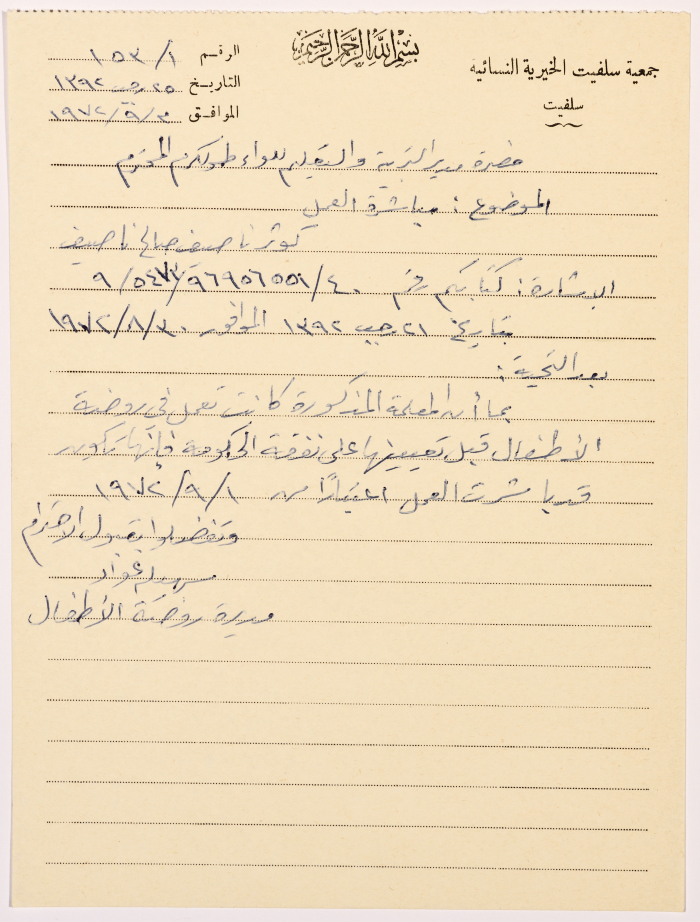 بسم الله الرحمن الرحيم
جمعية سلفيت الخيرية النسائية
سلفيت
الرقم ١٥٣/١
التاريخ ٢٥ رجب ١٣٩٢
الموافق ١٩٧٢/٩/٣
حضرة مدير التربية والتعليم للواء طولكرم المحترم
الموضوع : مباشرة العمل
كوثر ناصيف صالح ناصيف
الإشارة : كتابكم رقم
بتاريخ ٢١ رجب ١٣٩٢ الموافق ١٩٧٢/٨/٣٠
بعد التحية :
بما أن المعلمة المذكورة كانت تعمل في روضة
الأطفال قبل تعيينها على نفقة الحكومة فإنها تكون
قد باشرت العمل اعتبارًا من ١٩٧٢/٩/١
وتفضلوا بقبول الاحترام
سهام عواد
مديرة روضة الأطفال